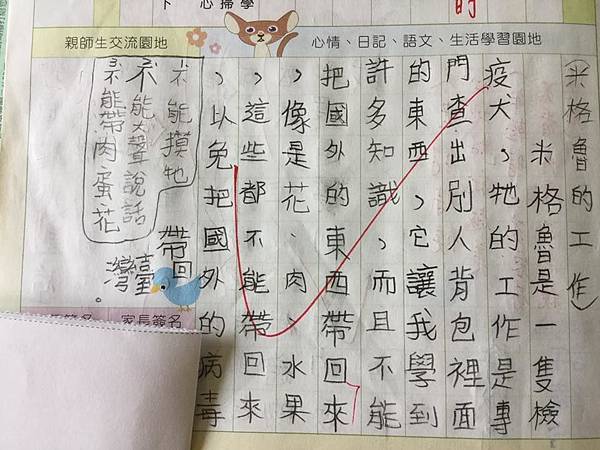 的
心掃學
親師生交流園地
心情、日記、語文、生活學習園地
(米格魯的工作)
米格魯是一隻檢
疫犬,牠的工作是專
門查出別人背包裡面
的東西,它讓我學到
許多知識,而且不能
把國外的東西帶回來
,像是花、肉、水果
,這些都不能帶回來
,以免把國外的病毒
帶回
臺灣。
不能摸牠
不能大聲說話
不能帶肉蛋花
家長簽名